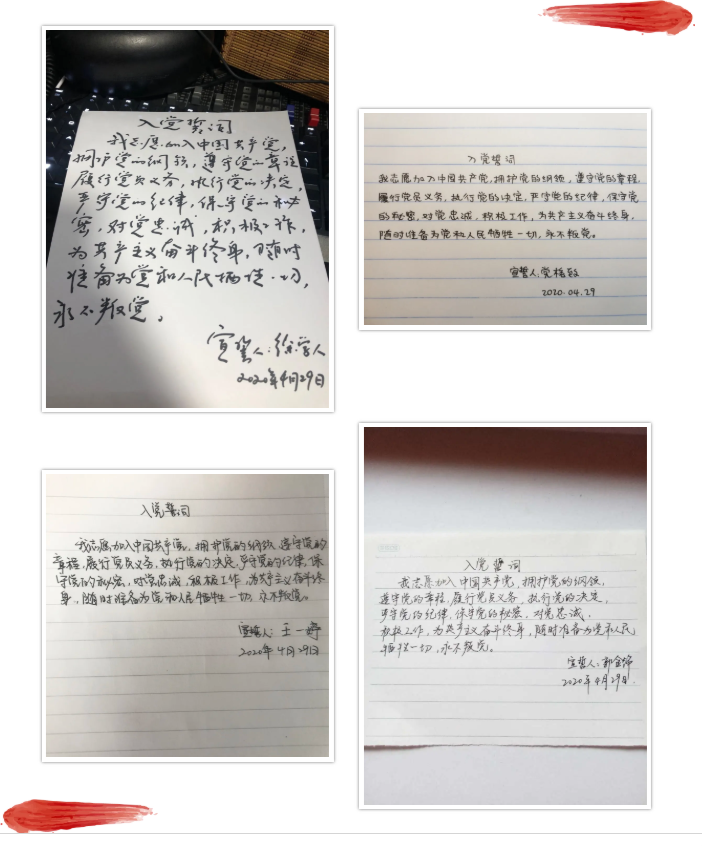 入党誓词
我志愿加入中国共产党,
拥护党的纲领,遵守党的章程
履行党员义务,执行党的决定,
严守党的纪律,保守党的秘
密,对党忠诚,积极工作,
为共产主义奋斗终身,随时
准备为党和人民牺牲一切,
永不叛党。
宣誓人:徐学人
2020年4月29日
入党誓词
我志愿加入中国共产党,拥护党的纲领,遵守党的章程,
履行党员义务,执行党的决定,严守党的纪律,保守党
的秘密,对党忠诚,积极工作,为共产主义奋斗终身,
随时准备为党和人民牺牲一切,永不叛党。
宣誓人:党
2020.04.29
入党誓词
我志愿加入中国共产党,拥护党的纲领,遵守党的
章程,履行党员义务,执行党的决定,严守党的纪律,保
守党的秘密,对党忠诚,积极工作,为共产主义奋斗终
身,随时准备为党和人民牺牲一切,永不叛党。
宣誓人:王一婷
2020年4月29日
入党誓词
我志愿加入中国共产党,拥护党的纲领,
遵守党的章程,履行党员义务,执行党的决定,
严守党的纪律,保守党的秘密,对党忠诚,
积极工作,为共产主义奋斗终身,随时准备为党和人民
牺牲一切,永不叛党。
宣誓人:郭金
2020年4月29日.